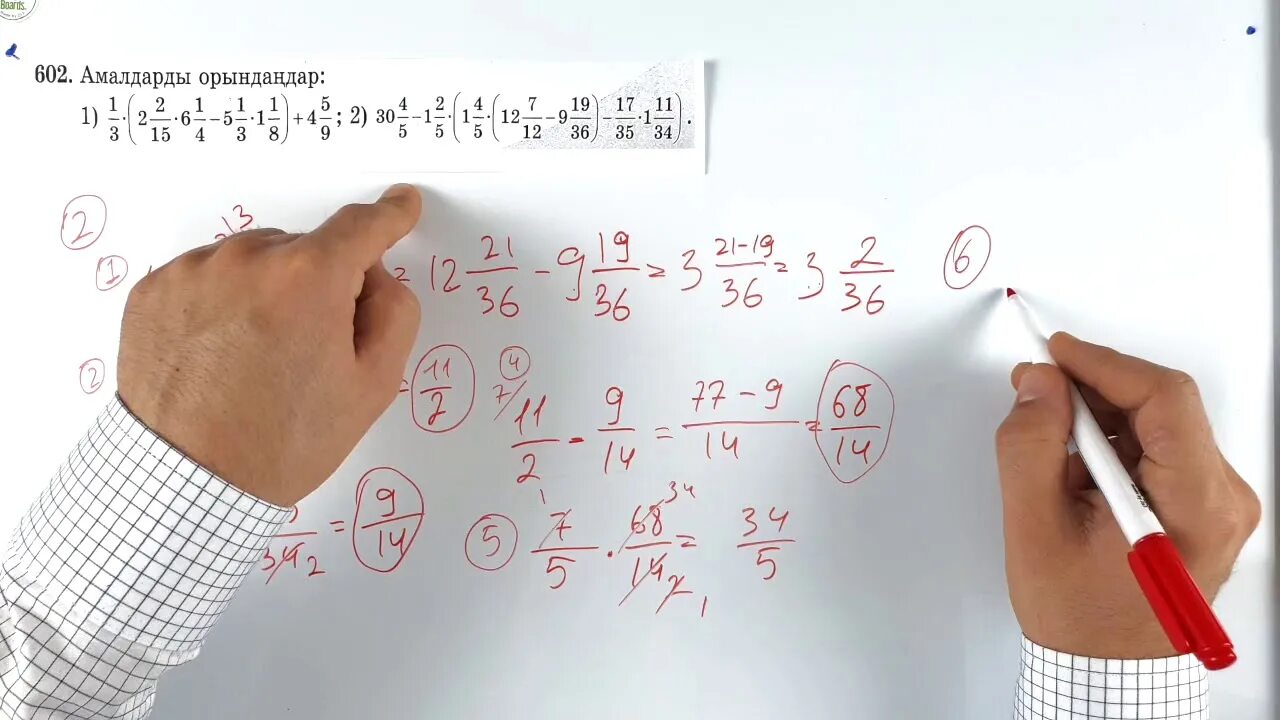 Boards.
602. Амалдарды орындаңдар:
1) 1/3·(2 2/15·6 1/4−5 1/3·1 1/8)+4 5/9; 2) 30 4/5−1 2/5·(1 4/5·(12 7/12−9 19/36)−17/35·1 11/34).
2
1 3 = 12 21/36 − 9 19/36 = 3 21−19/36 = 3 2/36
6
2 = 11/2
4 7/ 11/2 − 9/14 = 77−9/14 = 68/14
34 2 = 9/14
5 7/5 · 68/14 = 34/5
1 34 2 1